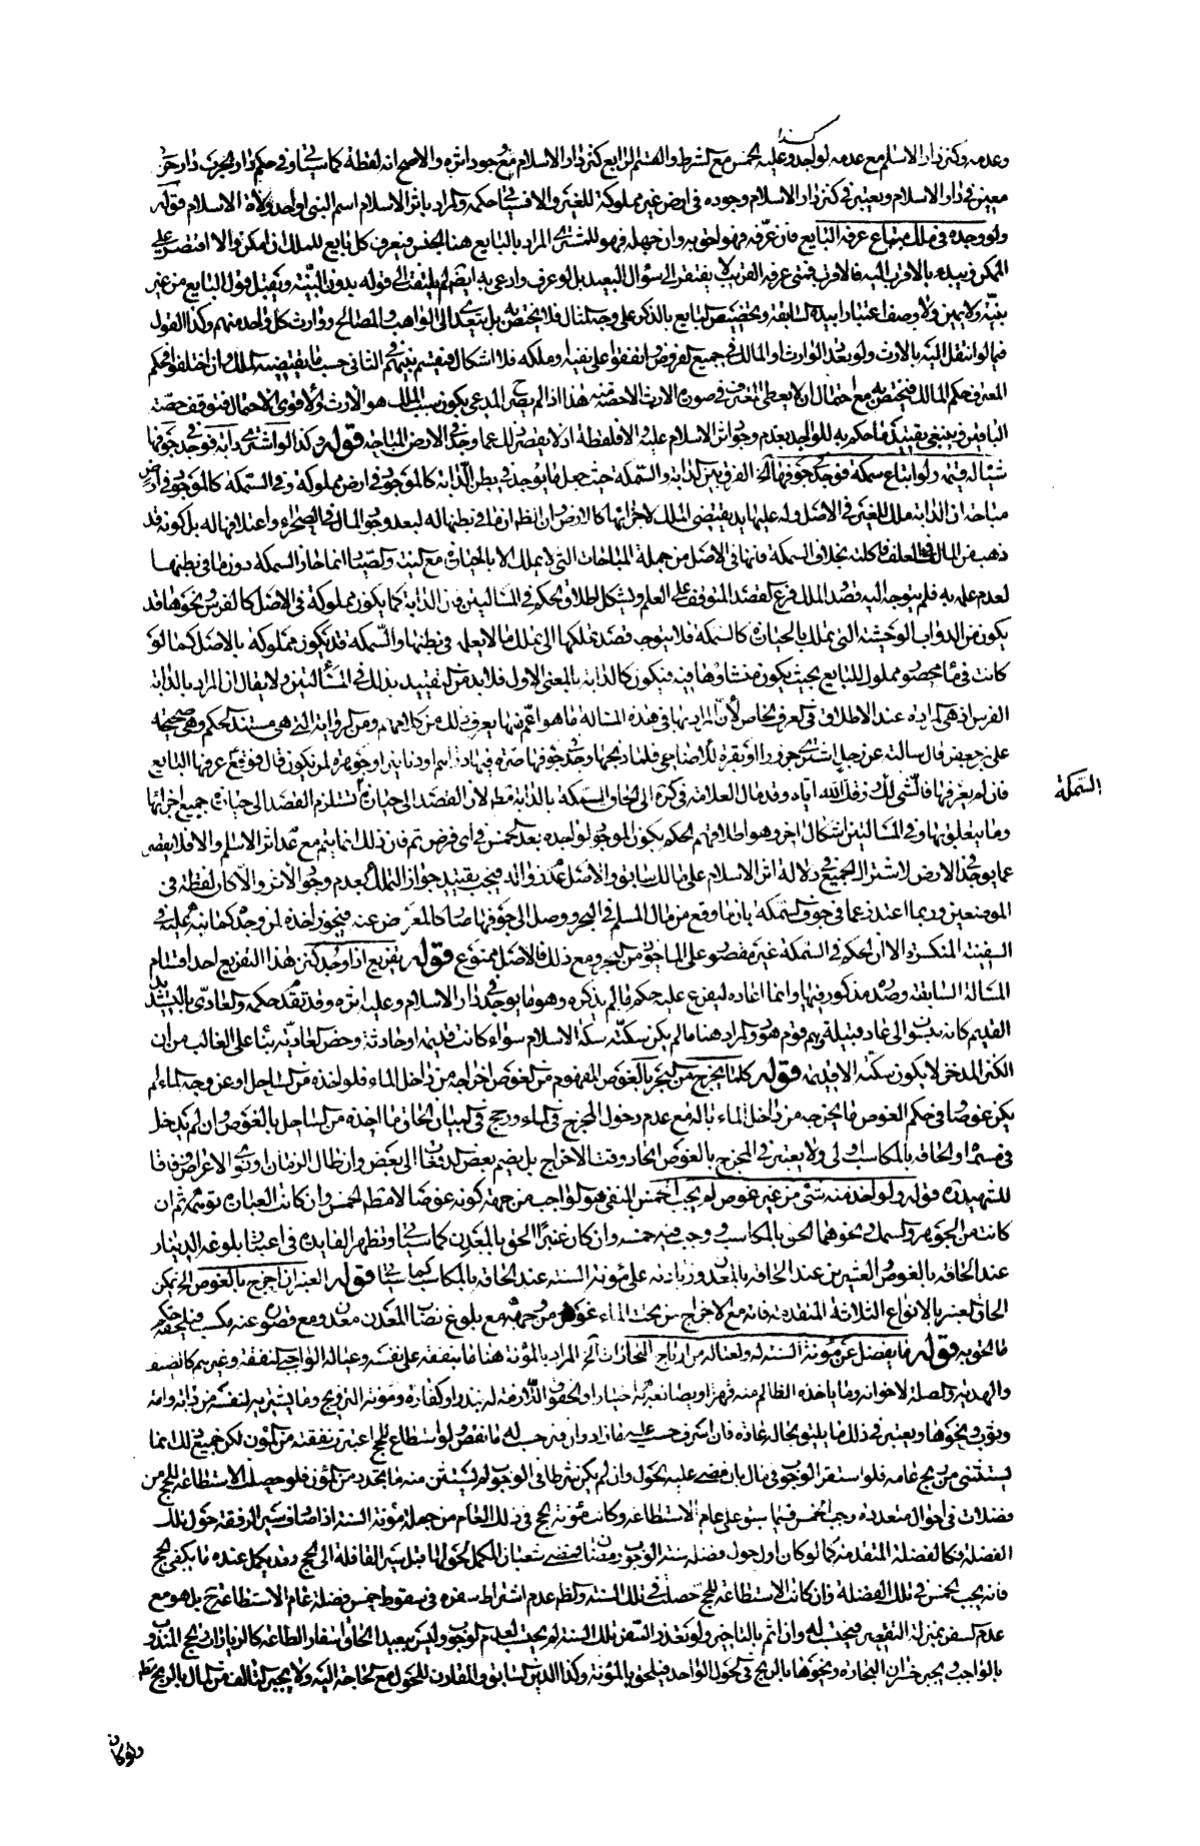 كذا
وعدمه وكنز دار الاسلام مع عدمه لواجده وعليه الخمس مع الشرط والقسم الرابع كنز دار الاسلام مع وجود اثره والاصح انه لقطة كما سيأتي وفي حكم دار الحرب دار
معينين في دار الاسلام ويعتبر في كنز دار الاسلام وجوده في ارض غير مملوكة للغير والا فسيأتي حكمه والمراد باثر الاسلام اسم النبي او احد ولاة الاسلام قوله
ولو وجده في ملك مبتاع عرفه البايع فان عرفه فهو احق به وان جهله فهو للمشتري المراد بالبايع هنا الجنس فيعرف كل بايع للملك ان امكن والا اقتصر على
الممكن ويبدء بالاقرب اليه فالاقرب فمتى عرفه القريب لا يفتقر الى سؤال البعيد بل لو عرف وادعى به ايضا لم يلتفت الى قوله بدون البينة ويقبل قول البايع من غير
بينة ولا يمين ولا وصف اعتبارا بيده السابقة وتخصيص البايع بالذكر على وجه المثال فلا يختص به بل يتعدى الى الواهب والمصالح ووارث كل واحد منهم وكذا القول
فيما لو انتقل اليه بالارث ولو تعدد الوارث او المالك في جميع الفروض واتفقوا على نفيه او ملكه فلا اشكال فيقسم بينهم في الثاني حسب ما يقتضيه الملك وان اختلفوا فحكم
المعترف حكم المالك فيختص به مع احتمال ان لا يعطى المعترف في صورة الارث الا حصته منه هذا اذا لم يصرح المدعي بكون سبب الملك هو الارث والاقوى الاحتمال فتوقف حصة
الباقين وينبغي تقييد ما حكم به للواجد بعدم وجود اثر الاسلام عليه والا فلقطة اذ لا يقصر ذلك عما وجد في الارض المباحة قوله وكذا لو اشترى دابة فوجد في جوفها
شيئا له قيمة ولو ابتاع سمكة فوجد في جوفها الخ الفرق بين الدابة والسمكة حيث جعل ما يوجد في بطن الدابة كالموجود في ارض مملوكة وفي السمكة كالموجود في ارض
مباحة ان الدابة ملك للغير في الاصل وله عليها يد يقتضي الملك لاجزائها كالارض وان الظاهر ان ما في بطنها له لبعد وجود المال في الصحراء واعتلافها له بل كونه قد
ذهب من المالك في العلف فاكلته بخلاف السمكة فانها في الاصل من جملة المباحات التي لا يملك الا بالحيازة مع النية والصياد انما حاز السمكة دون ما في بطنها
لعدم علمه به فلم يتوجه اليه قصد الملك فرع القصد المتوقف على العلم ويشكل اطلاق الحكم في المسالتين فان الدابة كما يكون مملوكة في الاصل كالفرس ونحوها قد
يكون من الدواب الوحشية التي تملك بالحيازة كالسمكة فلا يتوجه قصد تملكها الى تملك ما لا يعلم في بطنها والسمكة قد يكون مملوكة بالاصل كما لو
كانت في ماء محصور مملوك للبايع بحيث يكون منشاؤها فيه فيكون كالدابة بالمعنى الاول فلا بد من التقييد بذلك في المسألتين ولا يقال ان المراد بالدابة
الفرس اذ هي المرادة عند الاطلاق في العرف الخاص لأن المراد بها في هذه المسالة ما هو اعم منها يعرف ذلك من كلامهم ومن الرواية التي هي مستند الحكم وهي صحيحة
على بن جعفر قال سالته عن رجل اشترى جزورا او بقرة للاضاحي فلما ذبحها وجد في جوفها صرة فيها دراهم او دنانير او جوهرة لمن يكون قال فوقع عرفها البايع
فان لم يعرفها فالشيء لك رزقك الله اياه وقد مال العلامة في كرة الى الحاق السمكة بالدابة مطلقا لان القصد الى حيازة السمكة تستلزم القصد الى حيازة جميع اجزائها
السمكة
وما يتعلق بها وفي المسالتين اشكال اخر وهو اطلاقهم الحكم بكون الموجود لواجده بعد الخمس في اي فرض تم فان ذلك انما يتم مع عدم اثر الاسلام والا فلا يقصر
عما يوجد في الارض لاشتراك الجميع في دلالة اثر الاسلام على مالك سابق والاصل عدم زواله فيجب تقييد جواز التملك بعدم وجود الاثر والا كان لقطة في
الموضعين وربما اعتذر عما في جوف السمكة بان ما وقع من مال المسلم في البحر ووصل الى جوفها صار كالمعرض عنه فيجوز اخذه لمن وجده كما نبه عليه في
السفينة المنكسرة الا ان الحكم في السمكة غير مقصور على الماخوذ من البحر ومع ذلك فالاصل ممنوع قوله تفريع اذا وجد كنز هذا التفريع احد اقسام
المسالة السابقة وصدره مذكور فيها وانما اعاده ليفرع عليه حكم ما لم يذكره وهو ما يوجد في دار الاسلام وعليه اثره وقد تقدم حكمه والعادي بالتشديد
القديم كانه منسوب الى عاد قبيلة وهم قوم هود والمراد هنا ما لم يكن سكته سكة الاسلام سواء كانت قديمة او حادثة وخص العادية بناء على الغالب من ان
الكنز المدخر لا يكون سكته الا قديمة قوله كلما يخرج من البحر بالغوص المفهوم من الغوص اخراجه من داخل الماء فلو اخذه من الساحل او عن وجه الماء لم
يكن غوصا وفي حكم الغوص ما يخرجه من داخل الماء بالة مع عدم دخول المخرج في الماء ورجح في البيان الحاق ما اخذه من الساحل بالغوص وان لم يدخل
في مسماه والحاقه بالمكاسب اولى ولا يعتبر في المخرج بالغوص اتحاد وقت الاخراج بل يضم بعض الدفعات الى بعض وان طال الزمان او نوى الاعراض وفاقا
للشهيد ره قوله ولو اخذ منه شئ من غير غوص لم يجب الخمس المنفي هو الواجب من جهة كونه غوصا لا مطلق الخمس وان كانت العبارة توهمه ثم ان
كانت من الجوهر والسمك ونحوهما الحق بالمكاسب ووجب فيه خمسه وان كان عنبرا الحق بالمعدن كما سيأتي وتظهر الفايدة في اعتبار بلوغه الدينار
عند الحاقه بالغوص والعشرين عند الحاقه بالمعدن وزيادته على مؤنة السنة عند الحاقه بالمكاسب كما سيأتي قوله العنبر ان اخرج بالغوص الخ يمكن
الحاق العنبر بالانواع الثلاثة المتقدمة فانه مع الاخراج من تحت الماء غوص ومن وجهه مع بلوغ نصاب المعدن معدن ومع قصوره عنه مكسب فيلحقه حكم
ما الحق به قوله ما يفضل عن مؤنة السنة له ولعياله من ارباح التجارات الخ المراد بالمؤنة هنا ما ينفقه على نفسه وعياله الواجبي النفقة وغيرهم كالضيف
والهدية والصلة لاخوانه وما ياخذه الظالم منه قهرا او يصانعه به اختيارا والحقوق اللازمة له بنذر او كفارة ومؤنة التزويج وما يشتريه لنفسه من دابة وامة
وثوب ونحوها ويعتبر في ذلك ما يليق بحاله عادة فان اسرف حسب عليه ما زاد وان قتر حسب له ما نقص ولو استطاع للحج اعتبرت نفقته من المؤن لكن جميع ذلك انما
يستثنى من ربح عامه فلو استقر الوجوب في مال بان مضى عليه الحول وان لم يكن شرطا في الوجوب لم يستثن منه ما يتجدد من المؤن فلو حصلت الاستطاعة للحج من
فضلات في احوال متعددة وجب الخمس فيما سبق على عام الاستطاعة وكانت مؤنة الحج في ذلك العام من جملة مؤنة السنة اذا صادف سير الرفقة حول تلك
الفضلة فكالفضلة المتقدمة كما لو كان اول حول فضلة سنة الوجوب رمضان فيقضي شعبان المكمل لحولها قبل سير القافلة الى الحج وقد يكمل عنده ما يكفي الحج
فانه يجب الخمس في تلك الفضلة وان كانت الاستطاعة للحج حصلت في تلك السنة والظاهر عدم اشتراط سفره في سقوط خمس فضلة عام الاستطاعة بل هو مع
عدم السفر بمنزلة التقتير فيحتسب له وان اثم بالتاخير ولو تعذر السفر تلك السنة لم يحتسب لعدم الوجوب وليس ببعيد الحاق اسفار الطاعة كالزيارات والحج المندوب
بالواجب ويجبر خسران التجارة ونحوها بالربح في الحول الواحد فيلحق بالمؤنة وكذا الدين السابق والمقارن للحول مع الحاجة اليه ولا يجبر التالف من المال بالربح
ولو كان